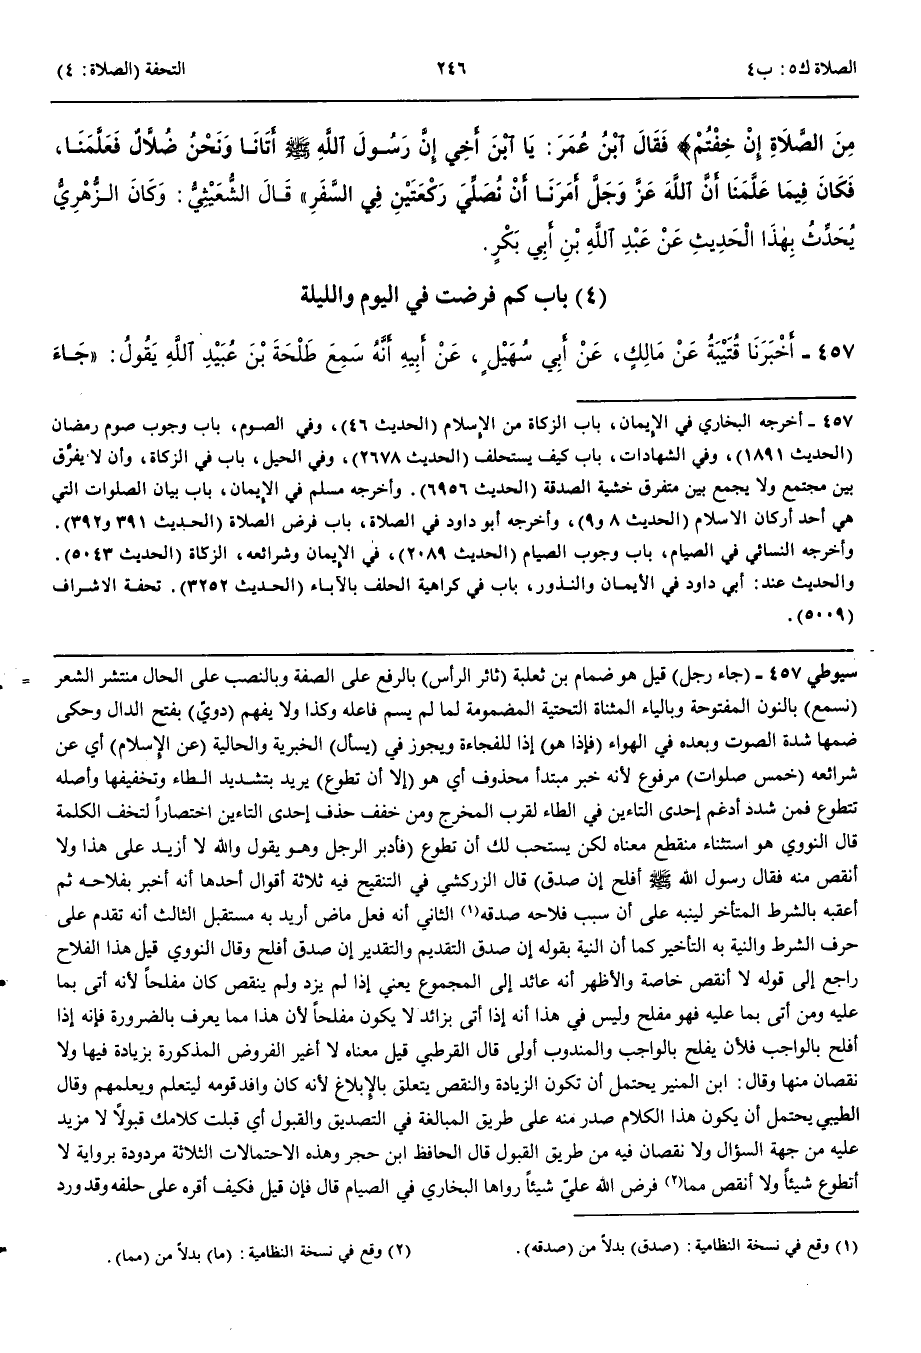 الصلاة ك٥: ب٤ ٢٤٦ التحفة (الصلاة: ٤)
مِنَ الصَّلَاةِ إِنْ خِفْتُمْ﴾ فَقَالَ ٱبْنُ عُمَرَ: يَا ٱبْنَ أَخِي إِنَّ رَسُولَ ٱللَّهِ ﷺ أَتَانَا وَنَحْنُ ضُلَّالٌ فَعَلَّمَنَا،
فَكَانَ فِيمَا عَلَّمَنَا أَنَّ ٱللَّهَ عَزَّ وَجَلَّ أَمَرَنَا أَنْ نُصَلِّيَ رَكْعَتَيْنِ فِي السَّفَرِ» قَالَ الشُّعَيْثِيُّ: وَكَانَ الزُّهْرِيُّ
يُحَدِّثُ بِهٰذَا الْحَدِيثِ عَنْ عَبْدِ ٱللَّهِ بْنِ أَبِي بَكْرٍ.
(٤) باب كم فرضت في اليوم والليلة
٤٥٧ ـ أَخْبَرَنَا قُتَيْبَةُ عَنْ مَالِكٍ، عَنْ أَبِي سُهَيْلٍ، عَنْ أَبِيهِ أَنَّهُ سَمِعَ طَلْحَةَ بْنَ عُبَيْدِ ٱللَّهِ يَقُولُ: «جَاءَ
٤٥٧ ـ أخرجه البخاري في الإيمان، باب الزكاة من الإسلام (الحديث ٤٦)، وفي الصوم، باب وجوب صوم رمضان
(الحديث ١٨٩١)، وفي الشهادات، باب كيف يستحلف (الحديث ٢٦٧٨)، وفي الحيل، باب في الزكاة، وأن لا يفرَّق
بين مجتمع ولا يجمع بين متفرق خشية الصدقة (الحديث ٦٩٥٦). وأخرجه مسلم في الإيمان، باب بيان الصلوات التي
هي أحد أركان الاسلام (الحديث ٨ و٩)، وأخرجه أبو داود في الصلاة، باب فرض الصلاة (الحديث ٣٩١ و٣٩٢).
وأخرجه النسائي في الصيام، باب وجوب الصيام (الحديث ٢٠٨٩)، في الإيمان وشرائعه، الزكاة (الحديث ٥٠٤٣).
والحديث عند: أبي داود في الأيمان والنذور، باب في كراهية الحلف بالآباء (الحديث ٣٢٥٢). تحفة الاشراف
(٥٠٠٩).
سيوطي ٤٥٧ ـ (جاء رجل) قيل هو ضمام بن ثعلبة (ثائر الرأس) بالرفع على الصفة وبالنصب على الحال منتشر الشعر =
(نسمع) بالنون المفتوحة وبالياء المثناة التحتية المضمومة لما لم يسم فاعله وكذا ولا يفهم (دويّ) بفتح الدال وحكى
ضمها شدة الصوت وبعده في الهواء (فإذا هو) إذا للفجاءة ويجوز في (يسأل) الخبرية والحالية (عن الإسلام) أي عن
شرائعه (خمس صلوات) مرفوع لأنه خبر مبتدأ محذوف أي هو (إلا أن تطوع) يريد بتشديد الطاء وتخفيفها وأصله
تتطوع فمن شدد أدغم إحدى التاءين في الطاء لقرب المخرج ومن خفف حذف إحدى التاءين اختصاراً لتخف الكلمة
قال النووي هو استثناء منقطع معناه لكن يستحب لك أن تطوع (فأدبر الرجل وهو يقول والله لا أزيد على هذا ولا
أنقص منه فقال رسول الله ﷺ أفلح إن صدق) قال الزركشي في التنقيح فيه ثلاثة أقوال أحدها أنه أخبر بفلاحه ثم
أعقبه بالشرط المتأخر لينبه على أن سبب فلاحه صدقه(١) الثاني أنه فعل ماض أريد به مستقبل الثالث أنه تقدم على
حرف الشرط والنية به التأخير كما أن النية بقوله إن صدق التقديم والتقدير إن صدق أفلح وقال النووي قيل هذا الفلاح
راجع إلى قوله لا أنقص خاصة والأظهر أنه عائد إلى المجموع يعني إذا لم يزد ولم ينقص كان مفلحاً لأنه أتى بما
عليه ومن أتى بما عليه فهو مفلح وليس في هذا أنه إذا أتى بزائد لا يكون مفلحاً لأن هذا مما يعرف بالضرورة فإنه إذا
أفلح بالواجب فلأن يفلح بالواجب والمندوب أولى قال القرطبي قيل معناه لا أغير الفروض المذكورة بزيادة فيها ولا
نقصان منها وقال: ابن المنير يحتمل أن تكون الزيادة والنقص يتعلق بالإبلاغ لأنه كان وافد قومه ليتعلم ويعلمهم وقال
الطيبي يحتمل أن يكون هذا الكلام صدر منه على طريق المبالغة في التصديق والقبول أي قبلت كلامك قبولاً لا مزيد
عليه من جهة السؤال ولا نقصان فيه من طريق القبول قال الحافظ ابن حجر وهذه الاحتمالات الثلاثة مردودة برواية لا
أتطوع شيئاً ولا أنقص مما(٢) فرض الله عليّ شيئاً رواها البخاري في الصيام قال فإن قيل فكيف أقره على حلفه وقد ورد
(١) وقع في نسخة النظامية: (صدق) بدلاً من (صدقه). (٢) وقع في نسخة النظامية: (ما) بدلاً من (مما).